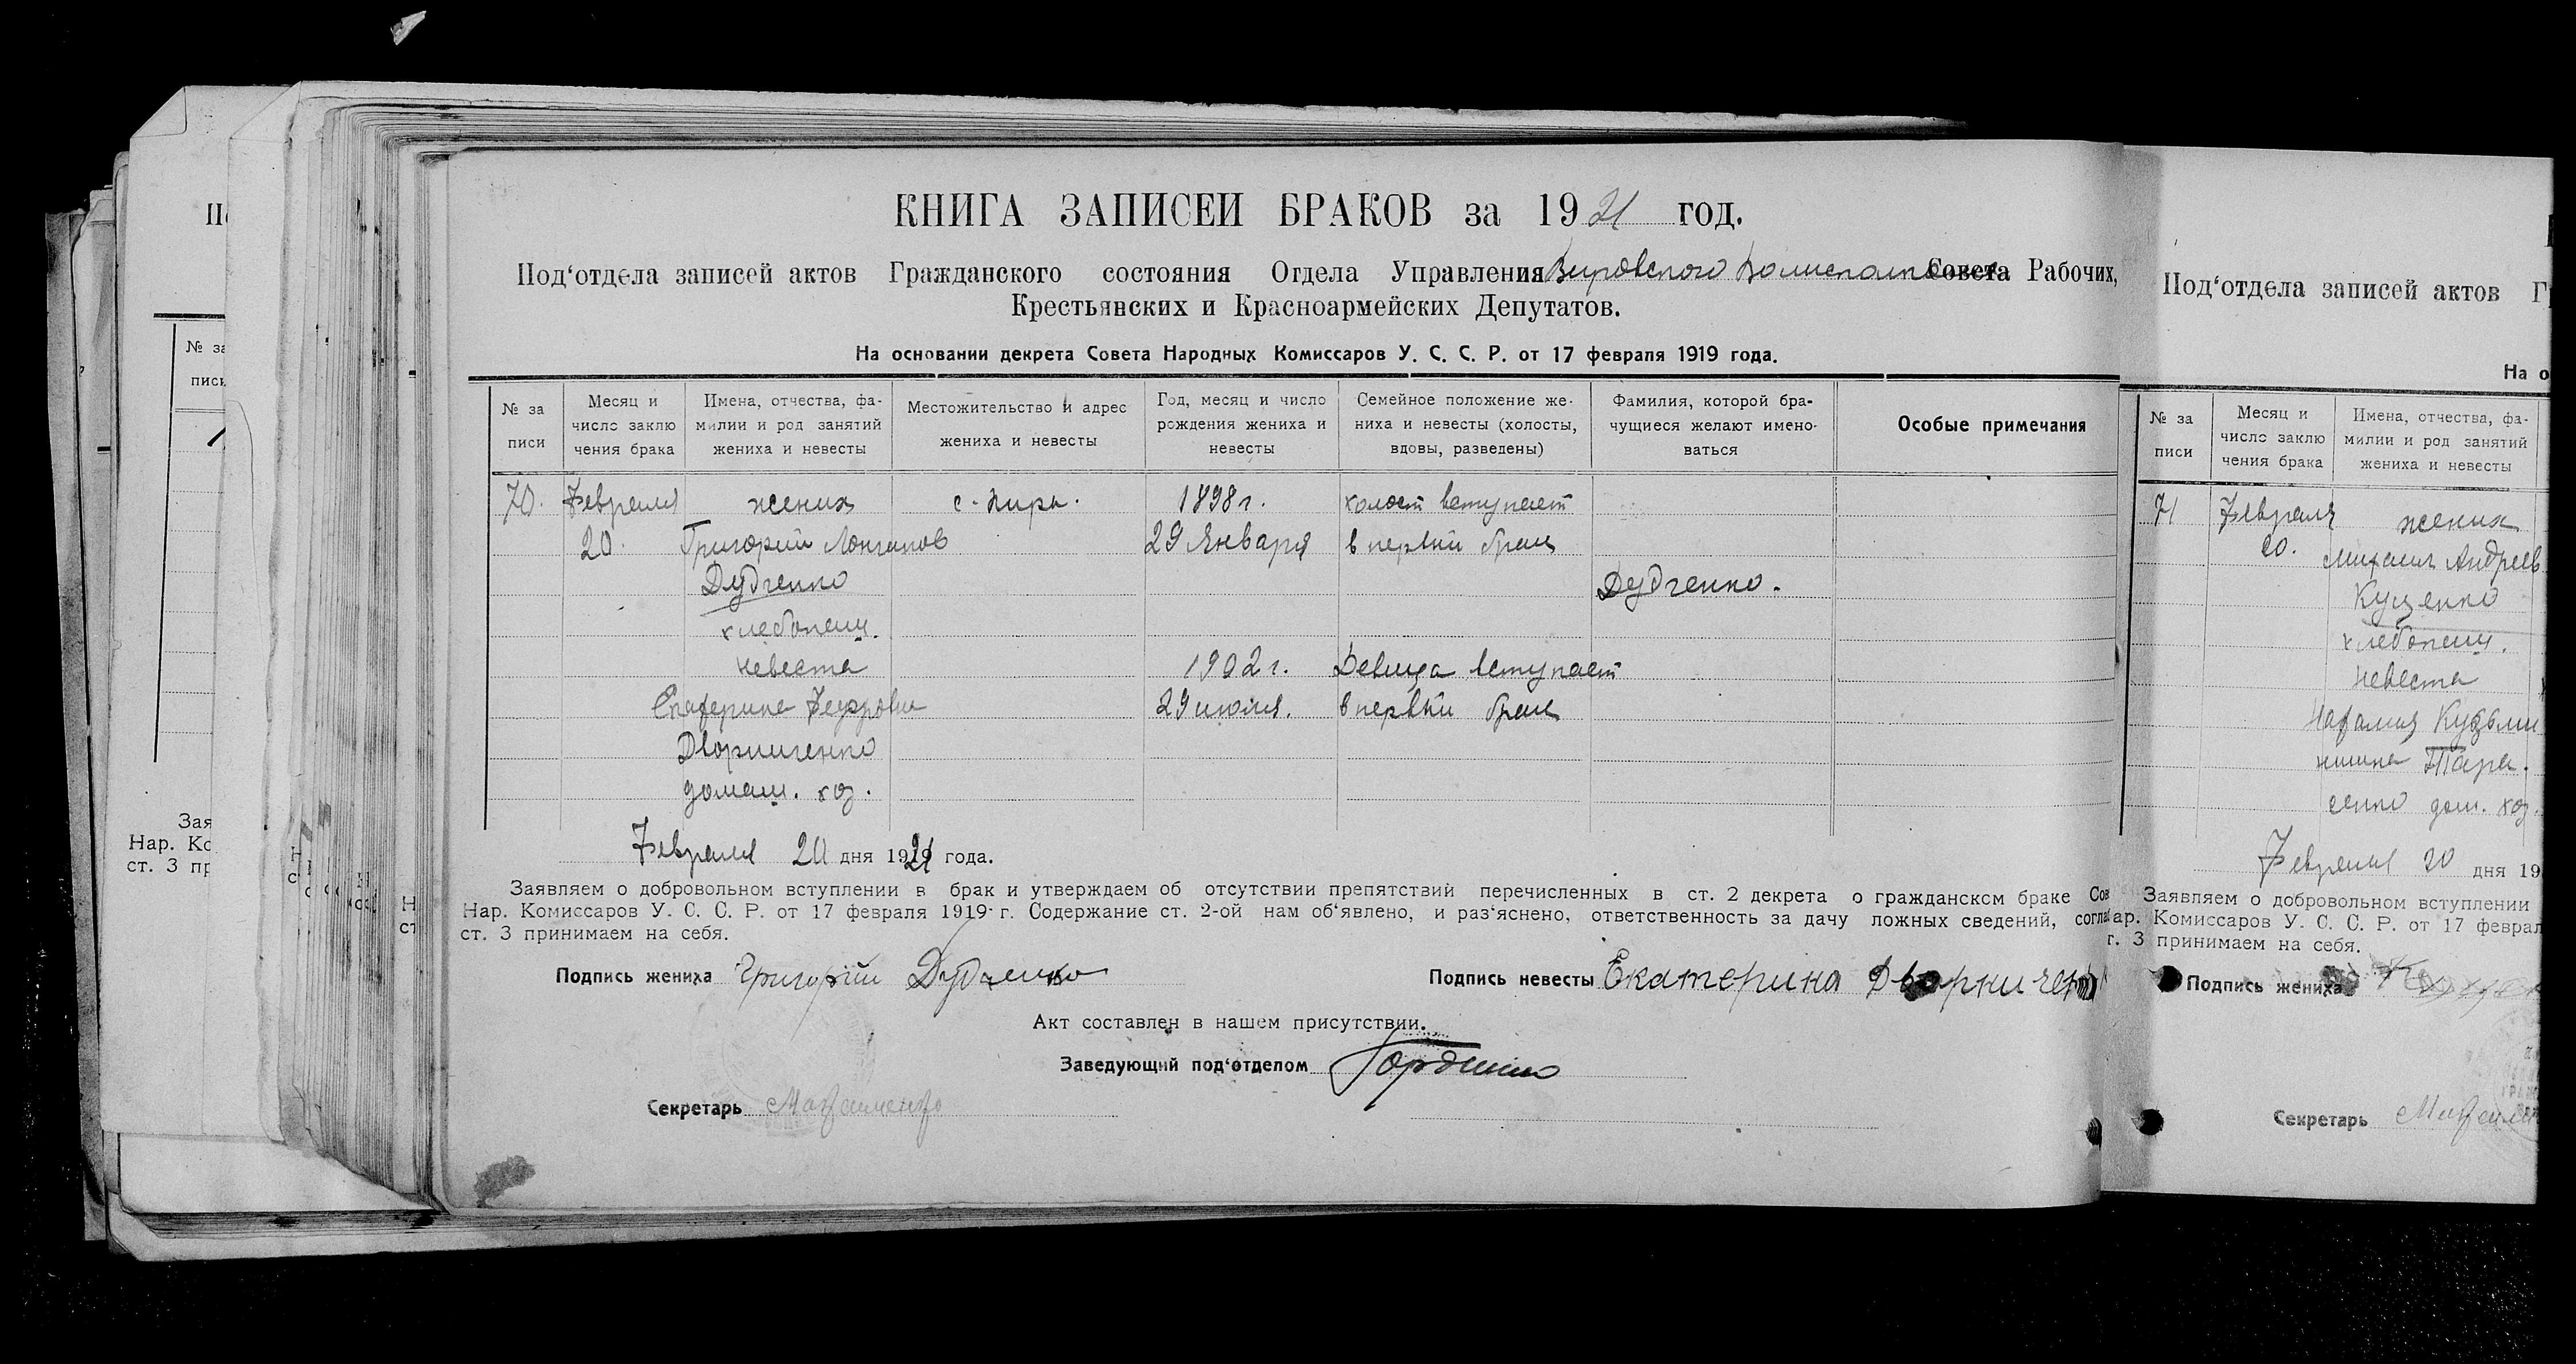 КНИГА ЗАПИСЕЙ БРАКОВ за 1921 год.
Под‘отдела записей актов Гражданского состояния Отдела Управления Вировского Волисполкома Совета Рабочих,
Крестьянских и Красноармейских Депутатов.
На основании декрета Совета Народных Комиссаров У. С. С. Р. от 17 февраля 1919 года.
№ за писи
Месяц и число заклю чения брака
Имена, отчества, фа- милии и род занятий жениха и невесты
Местожительство и адрес жениха и невесты
Год, месяц и число рождения жениха и невесты
Семейное положение же- ниха и невесты (холосты, вдовы, разведены)
Фамилия, которой бра- чущиеся желают имено- ваться
Особые примечания
70. Февраля жених 1898 г. холост вступает
20. Григорий Лонгинов 29 Января в первый брак
Дудченко Дудченко.
хлебопаш.
невеста 1902 г. Девица вступает
Екатерина Федоровна 29 июля. в первый брак
Дворниченко
домаш. хоз.
Февраля 20 дня 1921 года.
Заявляем о добровольном вступлении в брак и утверждаем об отсутствии препятствий перечисленных в ст. 2 декрета о гражданском браке Сов
Нар. Комиссаров У. С. С. Р. от 17 февраля 1919 г. Содержание ст. 2-ой нам об‘явлено, и раз‘яснено, ответственность за дачу ложных сведений, согла
ст. 3 принимаем на себя.
Подпись жениха Григорій Дудченко
Подпись невесты Екатерина Дворничен
Акт составлен в нашем присутствии.
Заведующий под‘отделом Гордиенко
Секретарь
Под‘отдела записей актов Г
На о
№ за писи
Месяц и число заклю чения брака
Имена, отчества, фа- милии и род занятий жениха и невесты
71 Февраля жених
20. Михаил Андреев
Куценко
хлебопаш.
невеста
Наталия Кузьми
нишна Тара-
сенко дом. хоз.
Февраля 20 дня 19
Заявляем о добровольном вступлении
ар. Комиссаров У. С. С. Р. от 17 феврал
т. 3 принимаем на себя.
Подпись жениха
Секретарь
№ за
писи
Зая
Нар. Ко
ст. 3 пр